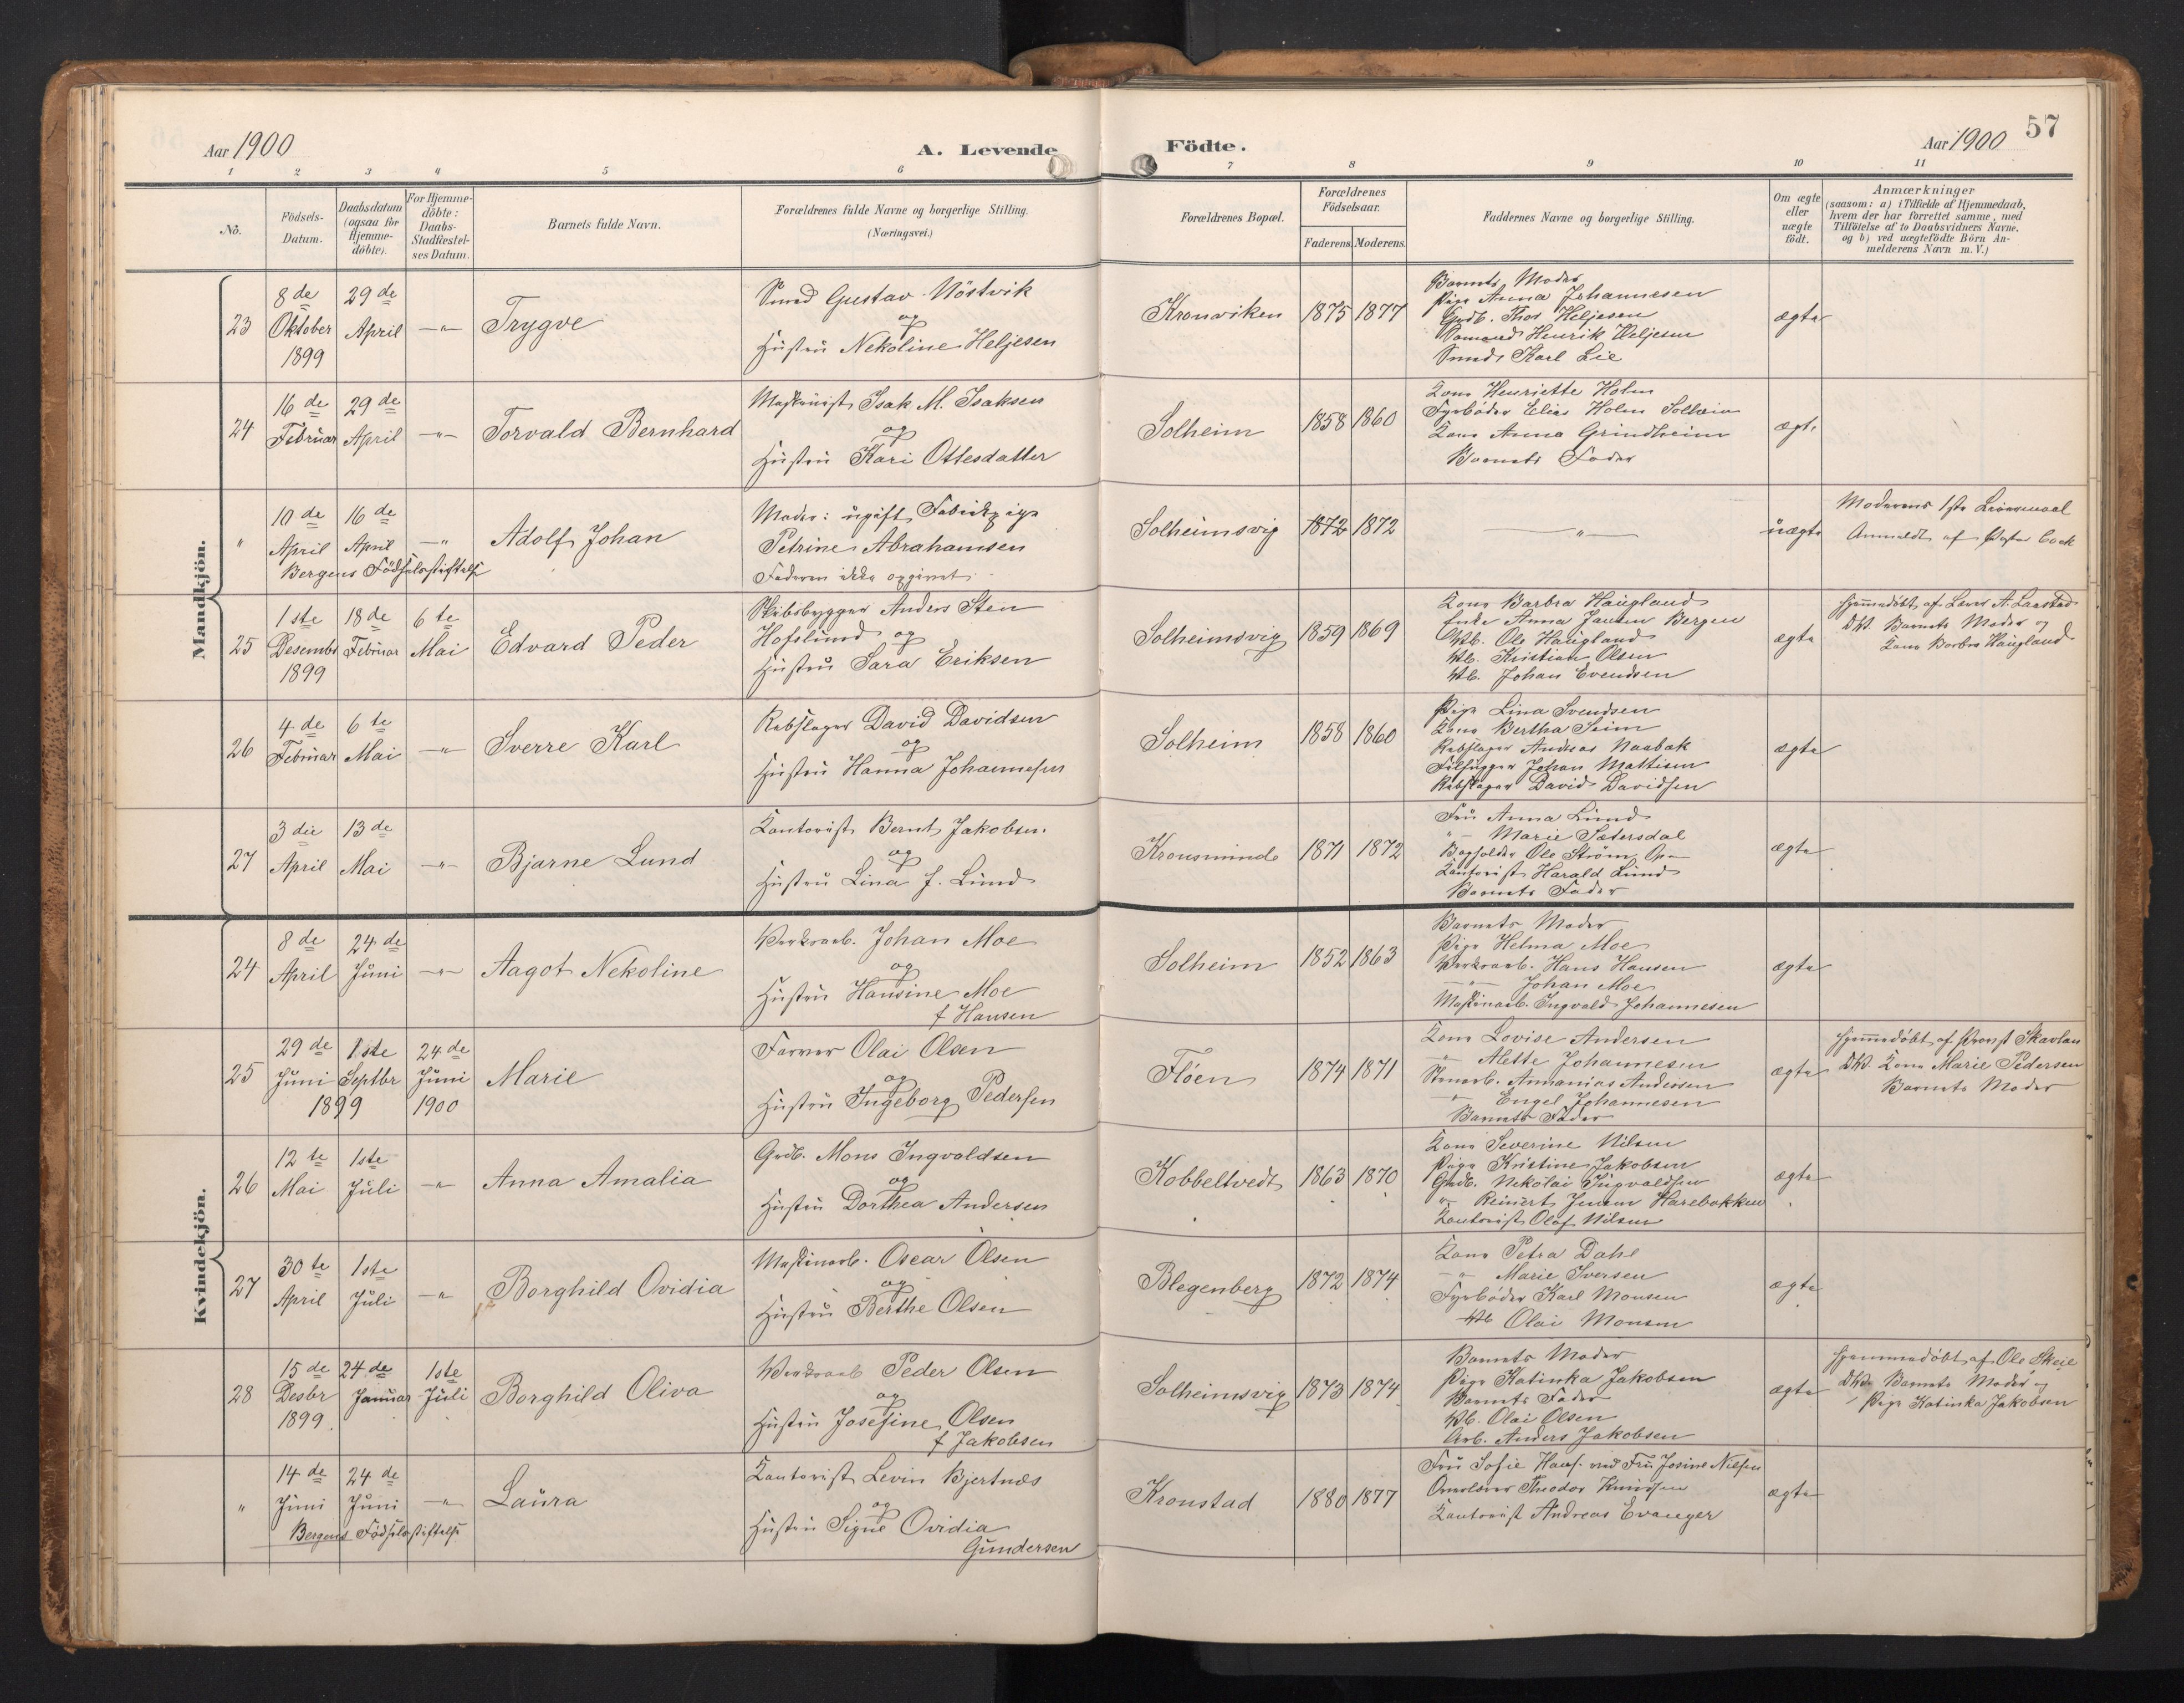 57
Aar 1900
A. Levende
Födte.
Aar 1900
1 2 3 4 5 6 7 8 9 10 11
No.
Födsels-Datum.
Daabsdatum (ogsaa for Hjemme-döbte).
For Hjemme-döbte: Daabs-Stadfæstel-ses Datum.
Barnets fulde Navn.
Forældrenes fulde Navne og borgerlige Stilling. (Næringsvei.)
Forældrenes Bopæl.
Forældrenes Födselsaar.
Faderens. Moderens.
Faddernes Navne og borgerlige Stilling.
Om ægte eller uægte födt.
Anmærkninger (saasom: a) i Tilfælde af Hjemmedaab, hvem der har forrettet samme, med Tilföielse af to Daabsvidners Navne. og b) ved uægtefödte Börn An-melderens Navn m. V.)
Mandkjön.
23
8de Oktober 1899
29de April
-"-
Trygve
Smed Gustav Nöstvik
og
Hustru Nekoline Heljesen
Kronviken
1875 1877
Barnets Moder
Pige Anna Johannesen
Grdb. Thos Heljesen
Sömand Henrik Heljesen
Smed Karl Lie
ægte
24
16de Februar
29de April
-"-
Torvald Bernhard
Maskinist Isak M. Isaksen
og
Hustru Kari Ottesdatter
Solheim
1858 1860
Kone Henriette Holm
Fyrböder Elias Holm Solheim
Kone Anna Grindheim
Barnets Fader
ægte
"
10de April
16de April
-"-
Bergens Födselsstiftelse
Adolf Johan
Moder: ugift Fabrikpige
Petrine Abrahamsen
Faderen ikke opgivet.
Solheimsvig
1872 1872
-"-
uægte
Moderens 1ste Leiermaal
Anmeldt af Pastor Cock
25
1ste Desembr 1899
18de Februar
6te Mai
Edvard Peder
Skibsbygger Anders Sten
Hofslund og
Hustru Sara Eriksen
Solheimsvig
1859 1869
Kone Barbra Haugland
Enke Anna Jansen Bergen
Vkb. Ole Haugland
Vkb. Kristian Olsen
Vkb. Johan Evendsen
ægte
Hjemmedöbt af Lærer A. Laastad
Dkv. Barnets Moder og
Kone Barbra Haugland
26
4de Februar
6te Mai
-"-
Sverre Karl
Rebslager David Davidsen
og
Hustru Hanna Johannesen
Solheim
1858 1860
Pige Lina Svendsen
Kone Bertha Seim
Rebslager Andreas Naabak
Filhugger Johan Mattisen
Rebslager David Davidsen
ægte
27
3die April
13de Mai
-"-
Bjarne Lund
Kontorist Bernt Jakobsen.
og
Hustru Lina f. Lund
Kronsminde
1871 1872
Fru Anna Lund
"- Marie Sætersdal
Bogholder Ole Ström
Kontorist Harald Lund
Barnets Fader
ægte
Kvindekjön.
24
8de April
24de Juni
-"-
Aagot Nekoline
Verksarb. Johan Moe
og
Hustru Hansine Moe
f Hansen
Solheim
1852 1863
Barnets Moder
Pige Helma Moe
Verksarb. Hans Hansen
-"- Johan Moe
Maskinarb. Ingvald Johannesen
ægte
25
29de Juni
1ste Septbr
24de Juni
1899
1900
Marie
Farver Olai Olsen
og
Hustru Ingeborg Pedersen
Flöen
1874 1871
Kone Lovise Andersen
-"- Alette Johannesen
Stenarb. Annanias Andersen
-"- Engel Johannesen
Barnets Fader
ægte
Hjemmedöbt af Provst Skavlan
Dkv. Kone Marie Pedersen
Barnets Moder
26
12te Mai
1ste Juli
-"-
Anna Amalia
Grdb. Mons Ingvaldsen
og
Hustru Dorthea Andersen
Kobbeltvedt
1863 1870
Kone Severine Nilsen
Pige Kristine Jakobsen
Grdb. Nekolai Ingvaldsen
"- Reinert Jensen Harebakken
Kontorist Olaf Nilsen
ægte
27
30te April
1ste Juli
-"-
Borghild Ovidia
Maskinarb. Oscar Olsen
og
Hustru Berthe Olsen
Blegenberg
1872 1874
Kone Petra Dahl
-"- Marie Iversen
Fyrböder Karl Monsen
Vkb Olai Monsen
ægte
28
15de Desbr 1899.
24de Januar
1ste Juli
Borghild Oliva
Verksarb Peder Olsen
og
Hustru Josefine Olsen
f Jakobsen
Solheimsvig
1873 1874
Barnets Moder
Pige Katinka Jakobsen
Barnets Fader
Vkb. Olai Olsen
Arb. Anders Jakobsen
ægte
Hjemmedöbt af Ole Skeie
Dkv. Barnets Moder og
Pige Katinka Jakobsen
"
14de Juni
24de Juni
-"-
Bergens Födselsstiftelse
Laura
Kontorist Levin Bjertnæs
og
Hustru Signe Ovidia
Gundersen
Kronstad
1880 1877
Fru Sofie Hans. ved Fru Josine Nilsen
Overlærer Theodor Knudsen
Kontorist Andreas Evanger
ægte